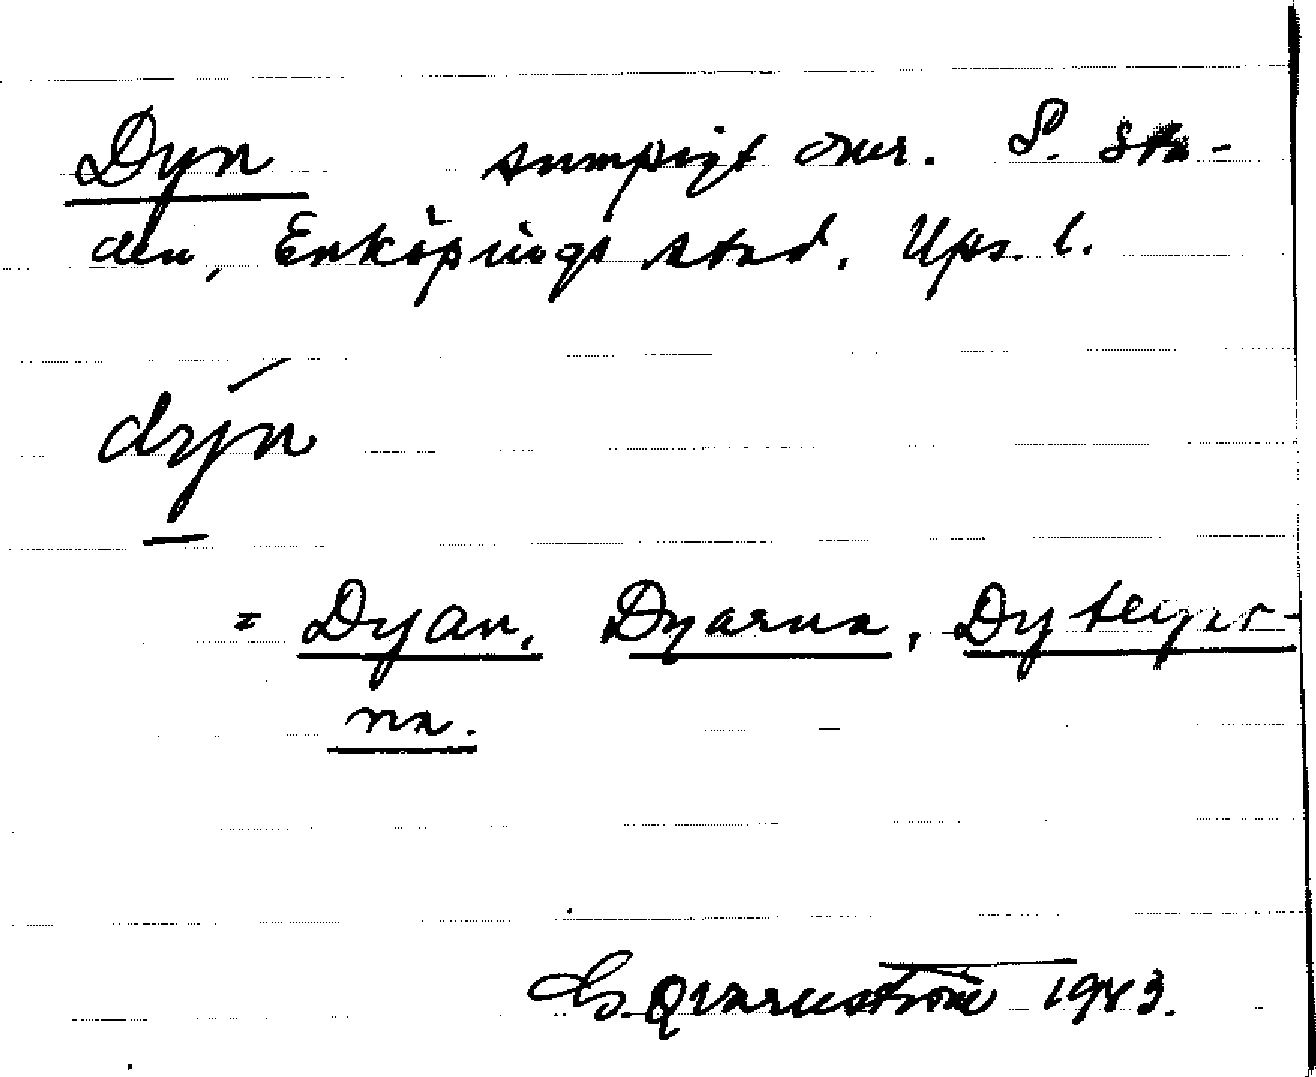 Dyn sumpigt omr. S. Sta-
den, Enköpings stad. Ups. l.
dýn
= Dyan, Dyarna, Dytegar-
na.
G. Qvarnström 1983.